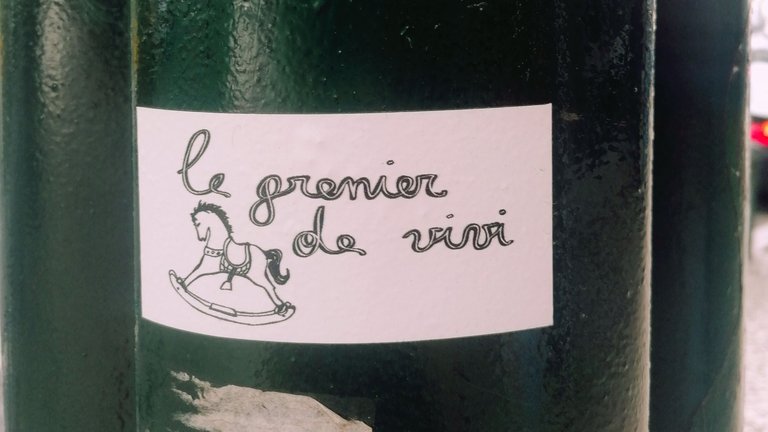 le grenier
de vivi